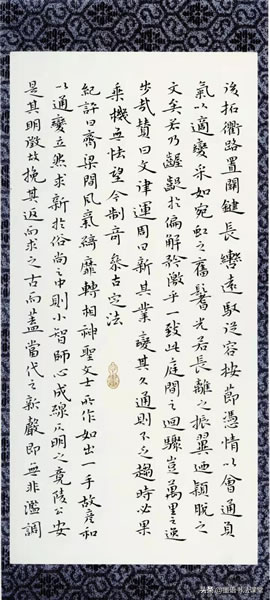 後拓衢路置關鍵長轡遠馭從容按節憑情以會通負
氣以適變采如宛虹之奮鬐光若長離之振翼迺穎脫之
文矣若乃齷齪於偏解矜激乎一致此庭間之迴驟豈萬里之逸
步哉贊曰文律運周日新其業變其久通則不乏趨時必果
乘機无怯望今制奇參古定法
紀評曰齊梁間風氣綺靡轉相神聖文士所作如出一手故彥和
以通變立然求新於俗尚之中則小智師心成纖仄明之竟陵公安
是其明徵故挽其返而求之古而蓋當代之新聲即無非濫調
头条 @墨语书法课堂